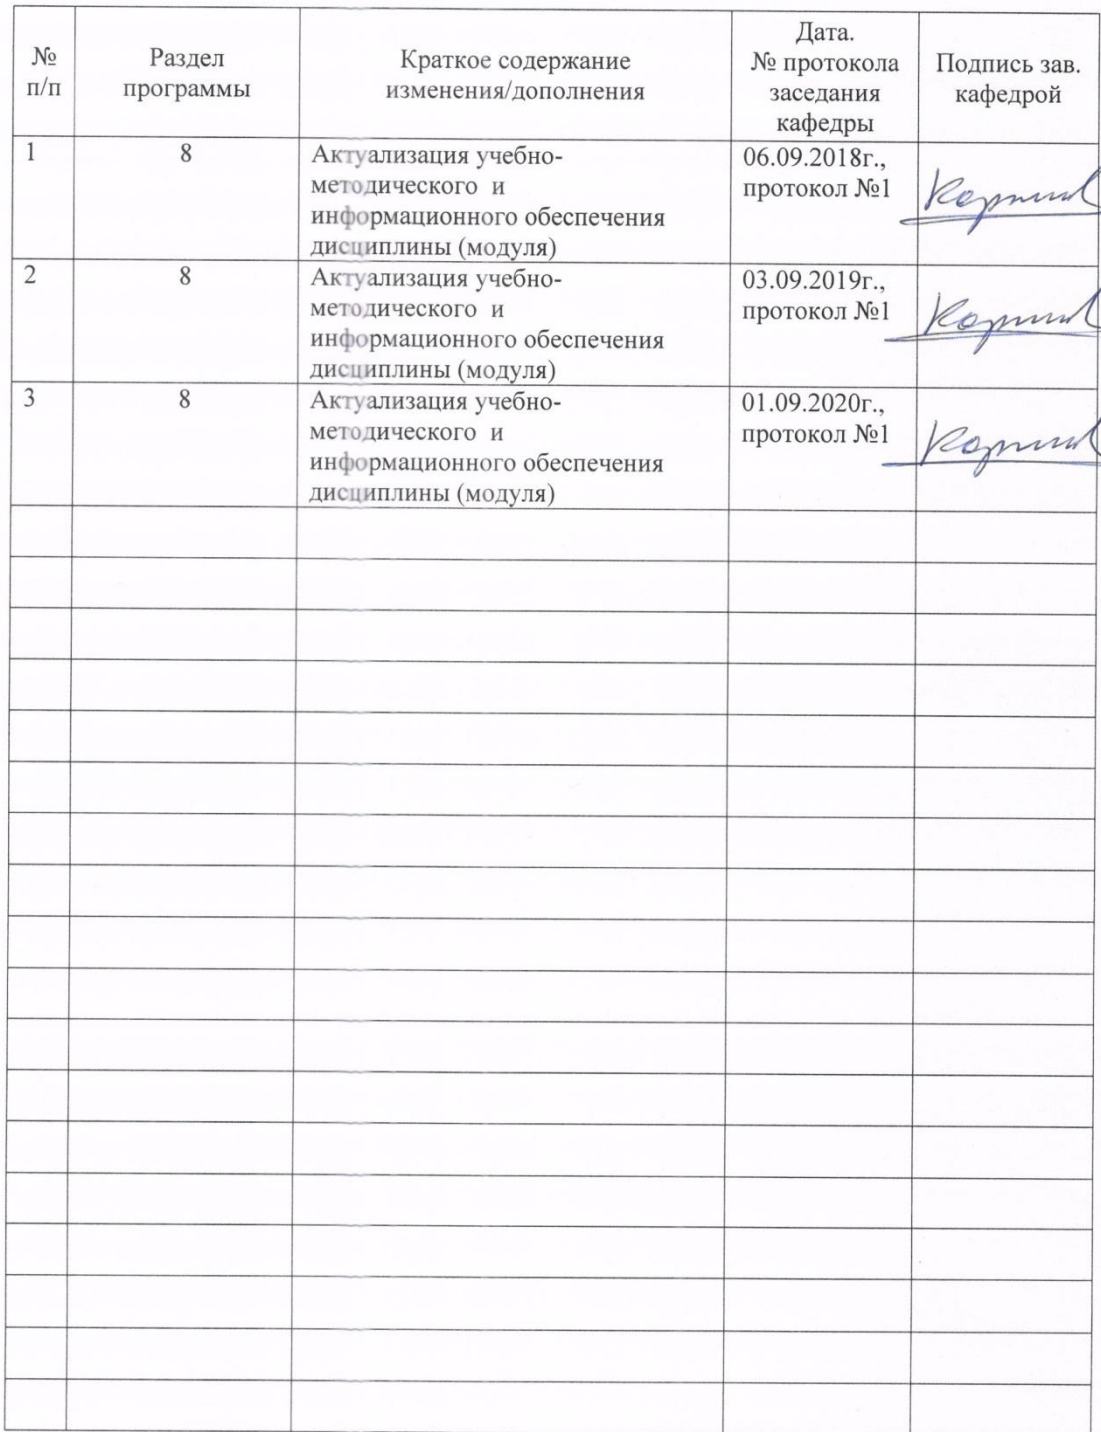 № п/п
Раздел программы
Краткое содержание изменения/дополнения
Дата. № протокола заседания кафедры
Подпись зав. кафедрой
1
8
Актуализация учебно-
методического и
информационного обеспечения
дисциплины (модуля)
06.09.2018г.,
протокол №1
2
8
Актуализация учебно-
методического и
информационного обеспечения
дисциплины (модуля)
03.09.2019г.,
протокол №1
3
8
Актуализация учебно-
методического и
информационного обеспечения
дисциплины (модуля)
01.09.2020г.,
протокол №1